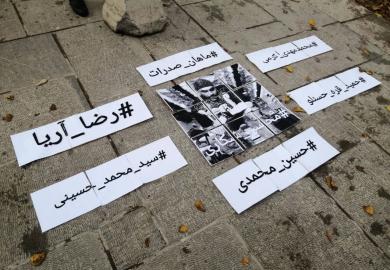 #ماهان_صدرات
#محمدمهدی_کرمی
#حمید_قره_حسنلو
#رضا_آریا
#سید_محمد_حسینی
#حسین_محمدی